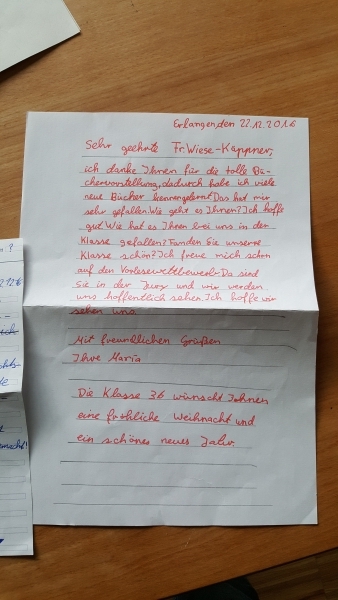 Erlangen, den 22.12.2016
Sehr geehrte Fr. Wiese-Kappner,
ich danke Ihnen für die tolle Bü-
chervorstellung, dadurch habe ich viele
neue Bücher kennengelernt. Das hat mir
sehr gefallen. Wie geht es Ihnen? Ich hoffe
gut. Wie hat es Ihnen bei uns in der
Klasse gefallen? Fanden Sie unsere
Klasse schön? Ich freue mich schon
auf den Vorlesewettbewerb. Da sind
Sie in der Jury und wir werden
uns hoffentlich sehen. Ich hoffe wir
sehen uns.
Mit freundlichen Grüßen
Ihre Maria
Die Klasse 3b wünscht Ihnen
eine fröhliche Weihnacht und
ein schönes neues Jahr.